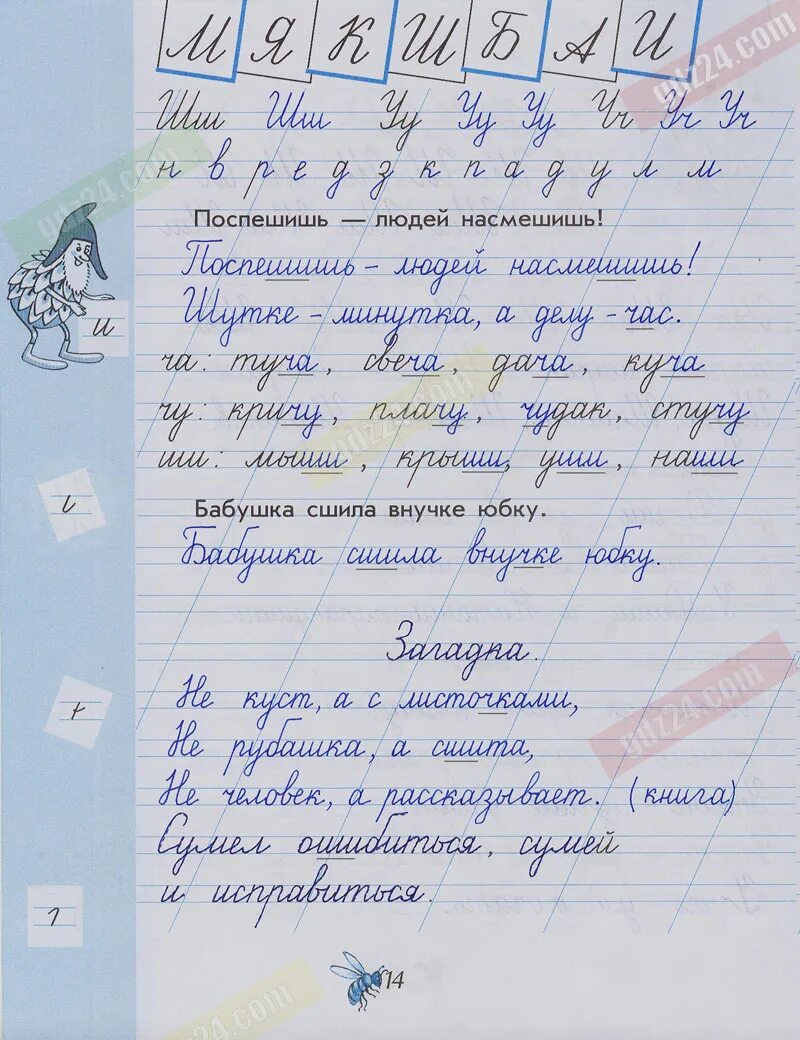 М Я К Ш Б А И
Шш Шш Уу Уу Уу Чч Чч Чч
н в р е д з к п а д у л м
Поспешишь — людей насмешишь!
Поспешишь – людей насмешишь!
Шутке – минутка, а делу – час.
ча: туча, свеча, дача, куча
чу: кричу, плачу, чудак, стучу
ши: мыши, крыши, уши, наши
Бабушка сшила внучке юбку.
Бабушка сшила внучке юбку.
Загадка.
Не куст, а с листочками,
Не рубашка, а сшита,
Не человек, а рассказывает. (книга)
Сумел ошибиться, сумей
и исправиться.
и
14
gdz24.com
gdz24.com
gdz24.com
gdz24.com
gdz24.com